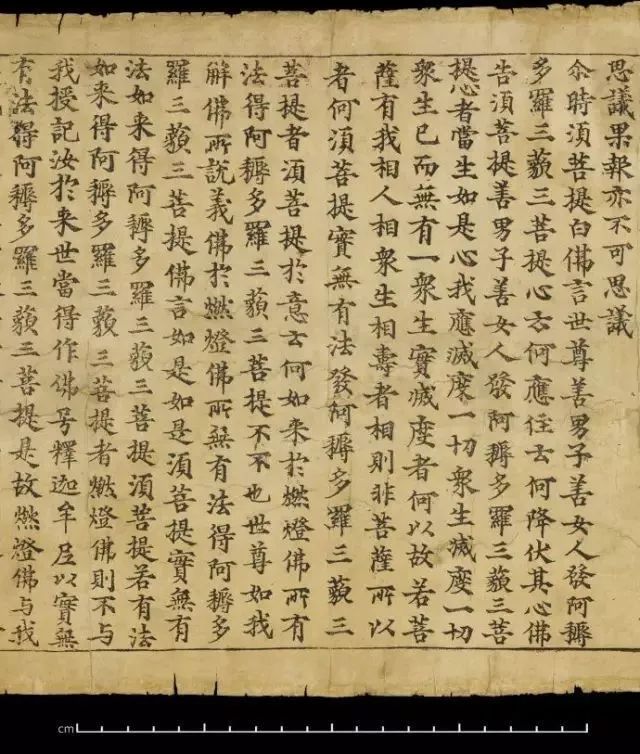 思議果報亦不可思議
尒時湏菩提白佛言世尊善男子善女人發阿耨
多羅三藐三菩提心云何應住云何降伏其心佛
告湏菩提善男子善女人發阿耨多羅三藐三菩
提心者當生如是心我應滅度一切衆生滅度一切
衆生已而無有一衆生實滅度者何以故若菩
薩有我相人相衆生相壽者相則非菩薩所以
者何湏菩提實無有法發阿耨多羅三藐三
菩提者湏菩提於意云何如来於燃燈佛所有
法得阿耨多羅三藐三菩提不不也世尊如我
解佛所說義佛於燃燈佛所無有法得阿耨多
羅三藐三菩提佛言如是如是湏菩提實無有
法如来得阿耨多羅三藐三菩提湏菩提若有法
如来得阿耨多羅三藐三菩提者燃燈佛則不与
我授記汝於来世當得作佛号釋迦牟尼以實無
有法得阿耨多羅三藐三菩提是故燃燈佛与我
cm